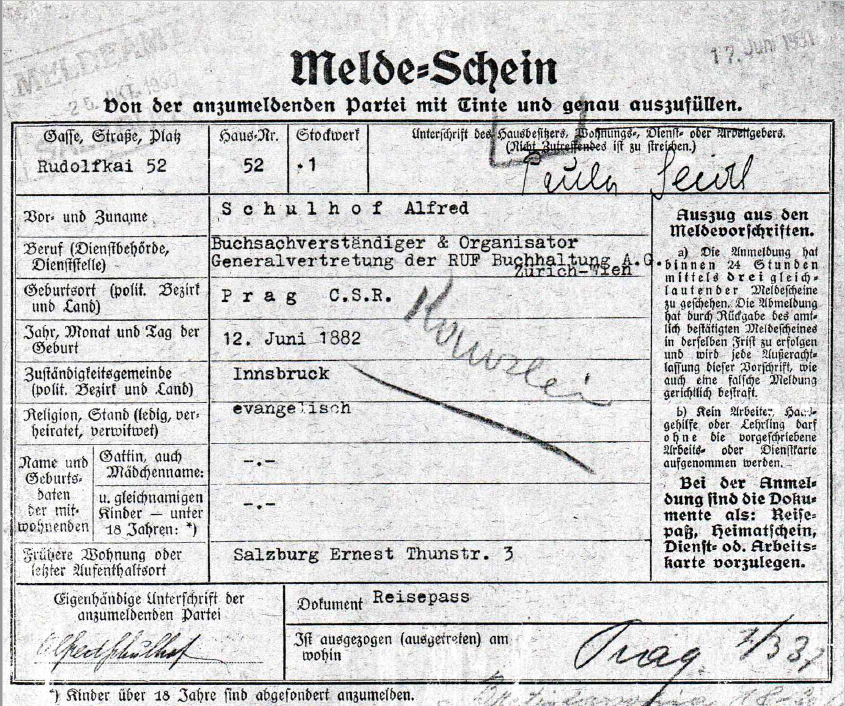 MELDEAMT
17. Juni 1931
Melde-Schein
Von der anzumeldenden Partei mit Tinte und genau auszufüllen.
Gasse, Straße, Platz
Rudolfkai 52
Haus-Nr.
52
Stockwerk
.1
Unterschrift des Hausbesitzers, Wohnungs-, Dienst- oder Arbeitgebers.
(Nicht Zutreffendes ist zu streichen.)
Paula Seidl
Vor- und Zuname
Schulhof Alfred
Beruf (Dienstbehörde,
Dienststelle)
Buchsachverständiger & Organisator
Generalvertretung der RUF Buchhaltung A.G.
Zürich-Wien
Geburtsort (polit. Bezirk
und Land)
Prag C.S.R.
Jahr, Monat und Tag der
Geburt
12. Juni 1882
Zuständigkeitsgemeinde
(polit. Bezirk und Land)
Innsbruck
Religion, Stand (ledig, ver-
heiratet, verwitwet)
evangelisch
Name und
Geburts-
daten
der mit-
wohnenden
Gattin, auch
Mädchenname:
-.-
u. gleichnamigen
Kinder — unter
18 Jahren: *)
-.-
Frühere Wohnung oder
letzter Aufenthaltsort
Salzburg Ernest Thunstr. 3
Auszug aus den
Meldevorschriften.
a) Die Anmeldung hat
binnen 24 Stunden
mittels drei gleich-
lautender Meldescheine
zu geschehen. Die Abmeldung
hat durch Rückgabe des amt-
lich bestätigten Meldescheines
in derselben Frist zu erfolgen
und wird jede Außeracht-
lassung dieser Vorschrift, wie
auch eine falsche Meldung
gerichtlich bestraft.
b) Kein Arbeiter, Haus-
gehilfe oder Lehrling darf
ohne die vorgeschriebene
Arbeits- oder Dienstkarte
aufgenommen werden.
Bei der Anmel-
dung sind die Doku-
mente als: Reise-
paß, Heimatschein,
Dienst- od. Arbeits-
karte vorzulegen.
Eigenhändige Unterschrift der
anzumeldenden Partei
Alfred Schulhof
Dokument Reisepass
Ist ausgezogen (ausgetreten) am
wohin
Prag
*) Kinder über 18 Jahre sind abgesondert anzumelden.